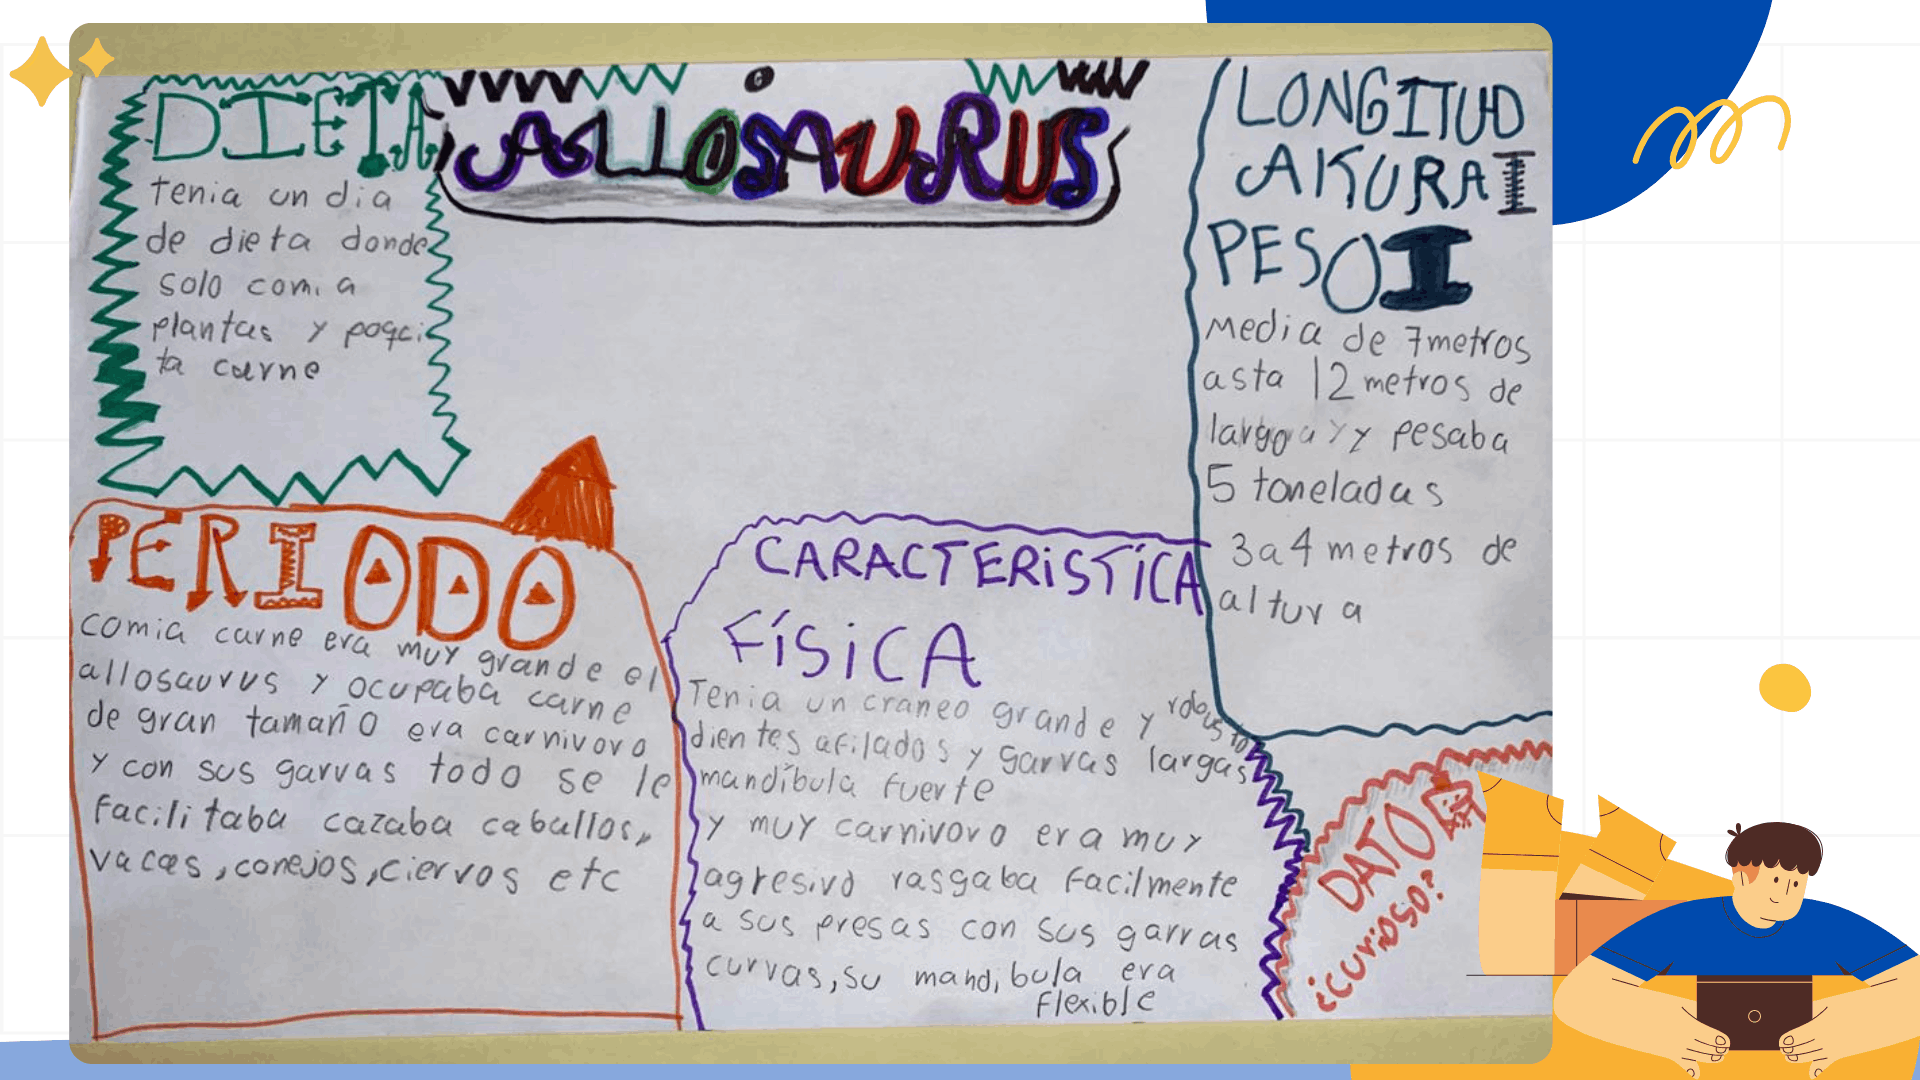 DIETA
tenia un dia
de dieta donde
solo comia
plantas y poqci
ta carne
ALLOSAURUS
LONGITUD
AKURA
PESO
Media de 7 metros
asta 12 metros de
largo y pesaba
5 toneladas
3 a 4 metros de
altura
PERIODO
comia carne era muy grande el
allosaurus y ocupaba carne
de gran tamaño era carnivoro
y con sus garvas todo se le
facilitaba cazaba caballos,
vacas, conejos, ciervos etc
CARACTERISTÍCA
FÍSICA
Tenia un craneo grande y robusto
dientes afilados y garvas largas
mandíbula fuerte
y muy carnivoro era muy
agresivo rasgaba facilmente
a sus presas con sus garras
curvas, su mandibula era
flexible
DATO
¿curioso?